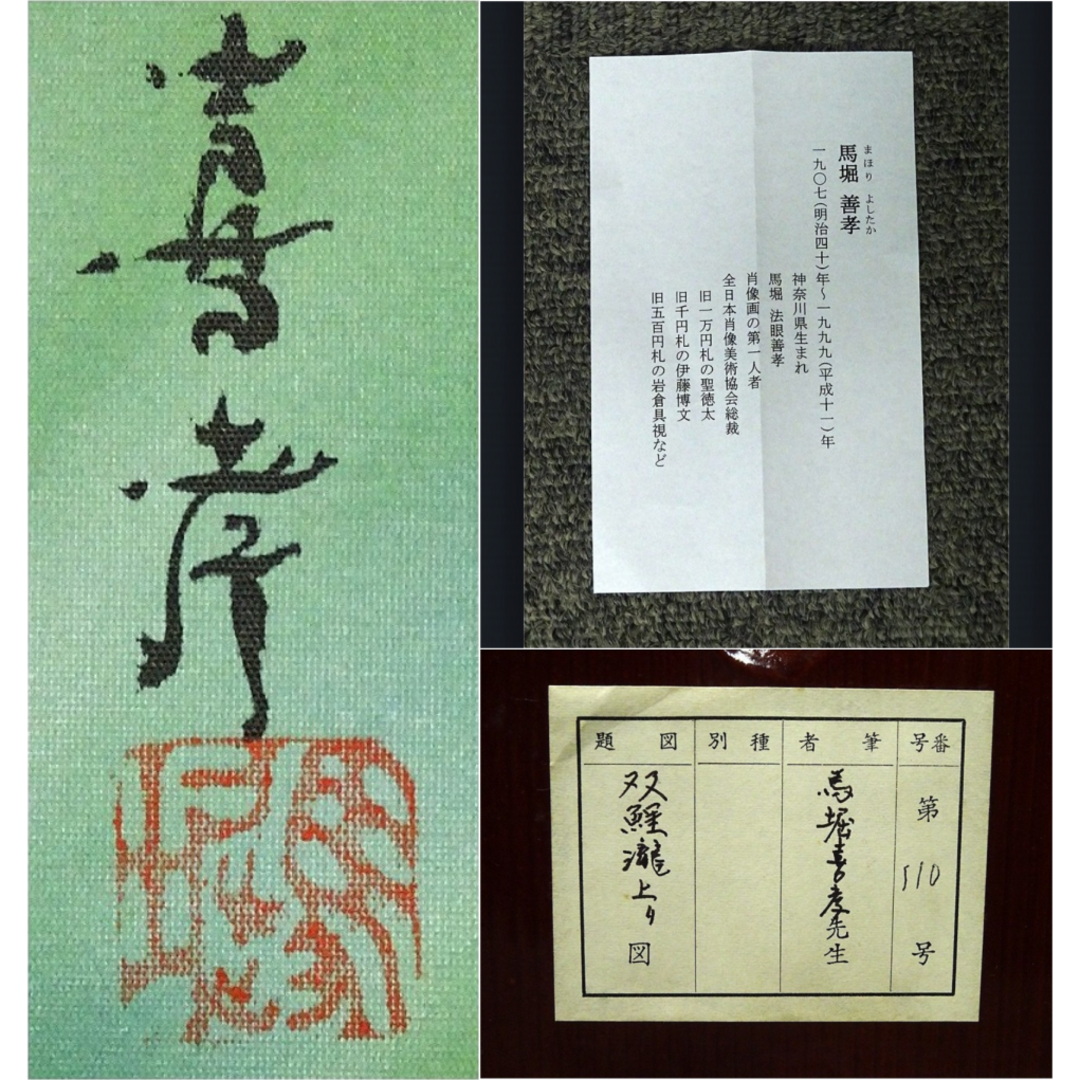 喜孝
まほり よしたか
馬堀 善孝
一九〇七(明治四十)年〜一九九九(平成十一)年
神奈川県生まれ
馬堀 法眼善孝
肖像画の第一人者
全日本肖像美術協会総裁
旧一万円札の聖徳太
旧千円札の伊藤博文
旧五百円札の岩倉具視など
番号
第510号
筆者
馬堀喜孝先生
種別
図題
双鯉瀧上り図